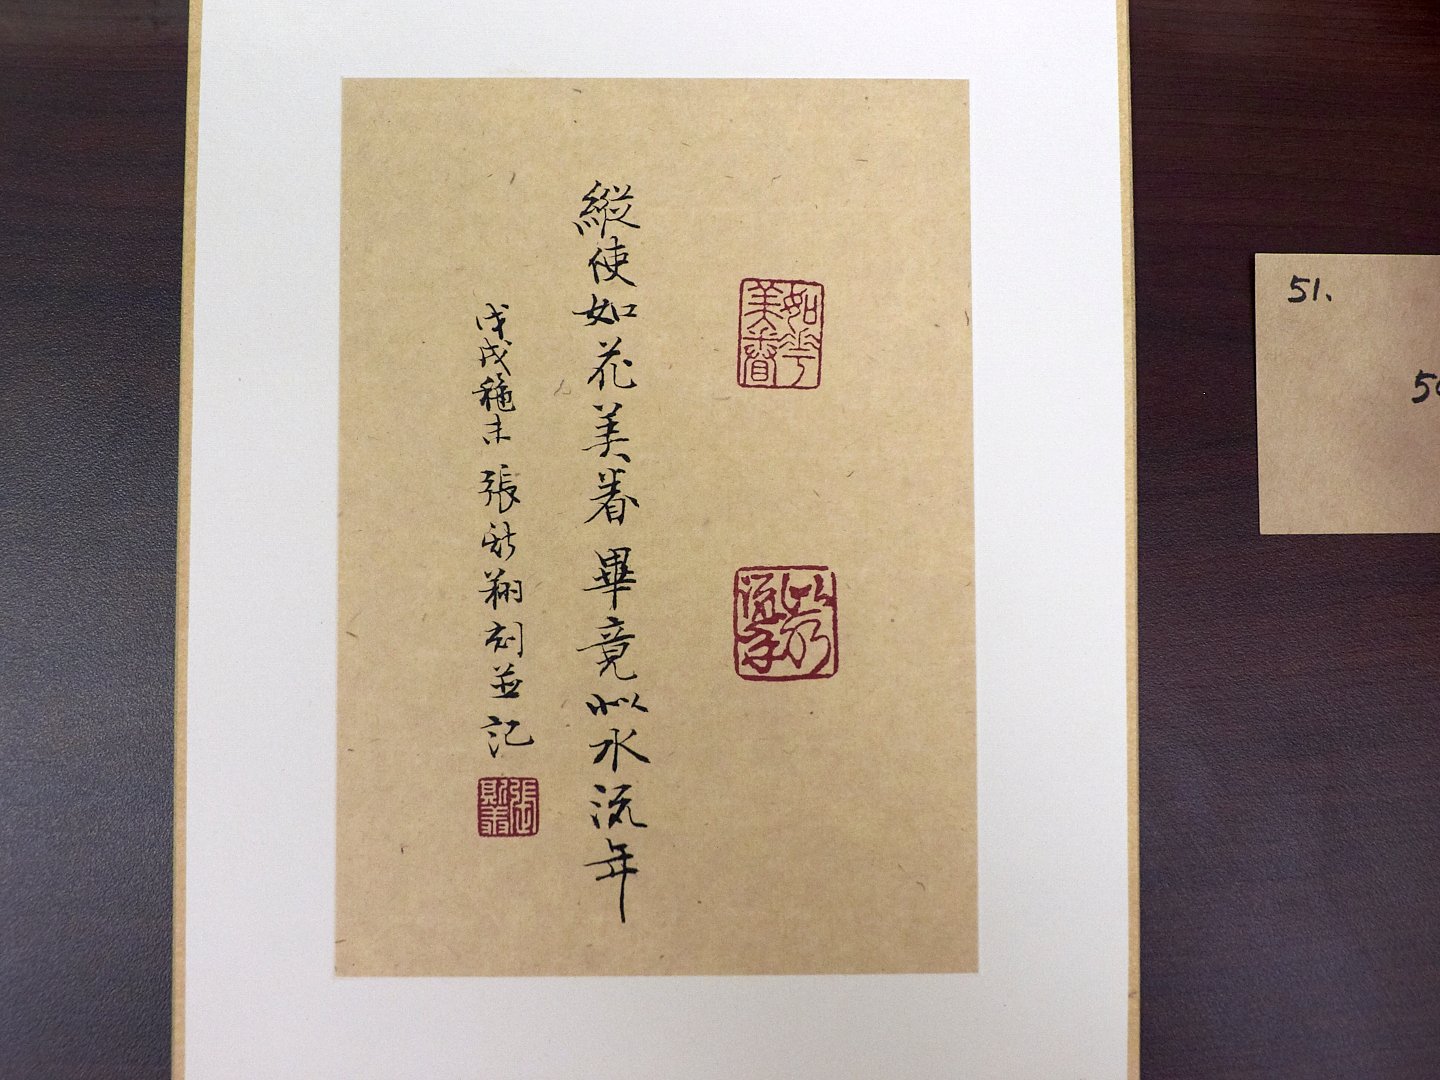 如華美眷
似水流年
縱使如花美眷畢竟似水流年
戊戌穐末張斯翔刻並記
51.